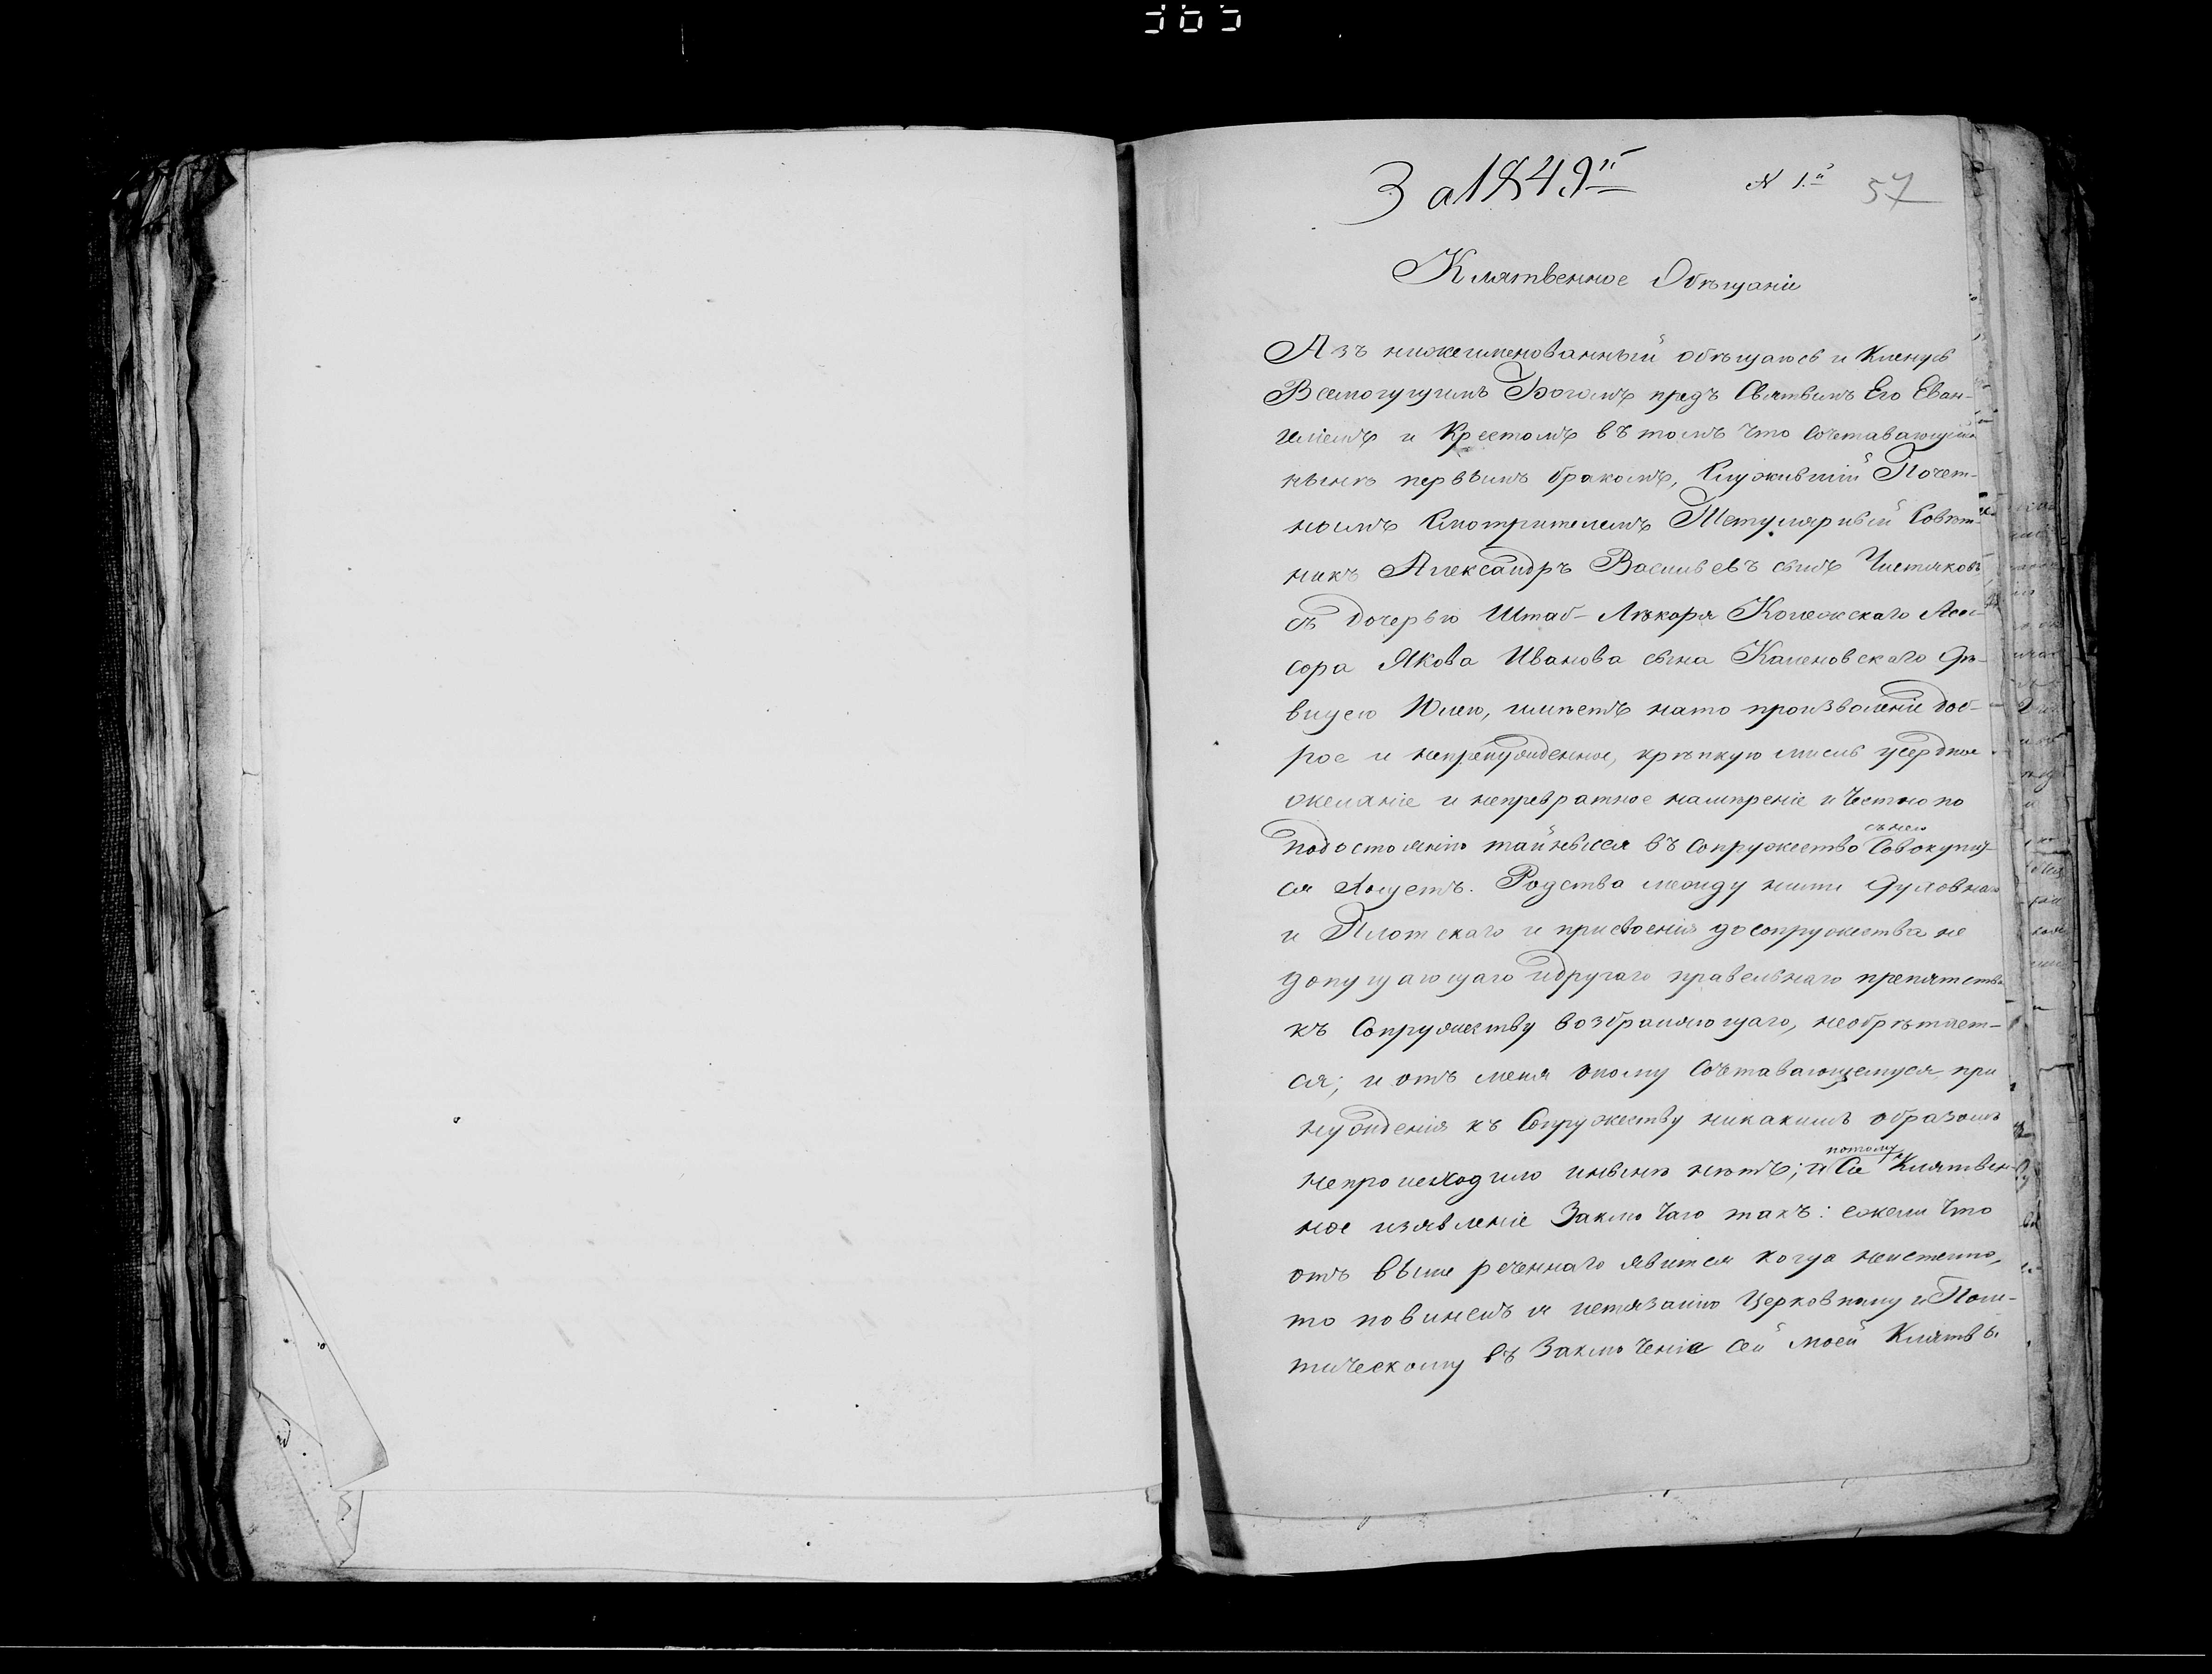 За 1849й
N 1й 57
Клятвенное Обѣщаніе
Азъ нижеименованный обѣщаюсь и кленусь
Всемогущимъ Богомъ предъ Святымъ Его Еван-
гелiемъ и Крестомъ въ томъ что Сочетавающійся
нынѣ первымъ бракомъ, Служившій Почет-
нымъ Смотрителемъ Тетулярный Совѣт-
никъ Александръ Васильевъ сынъ Чистяковъ
съ дочерью Штаб-Лѣкоря Колежскаго Асес-
сора Якова Иванова сына Каменовскаго Дѣ-
вицею Юлею, имѣетъ нато произволеніе доб-
рое и непренужденное, крѣпкую мысль усердное
желаніе и непревратное намѣреніе и честно по
подостоянію тайны сея въ сопружество съ нею Совокупит-
ся Хощетъ. Родства между ними Духовнаго
и Плотскаго и присвоенія до сопружества не
допущающаго и другаго правельнаго препятства
къ Сопружеству возбраняющаго, необрѣтает-
ся; и отъ меня оному Сочтавающемуся при
нужденія къ Сопружеству никакимъ образомъ
непроисходило инынѣ нѣтъ; и потому Сіе Клятвен-
ное изявленіе Заключаю такъ: ежели что
отъ выше реченнаго явится когда неистенно,
то повиненъ я истязанію Церковному и Поли-
тическому въ Заключеніе сей моей Клятвы.